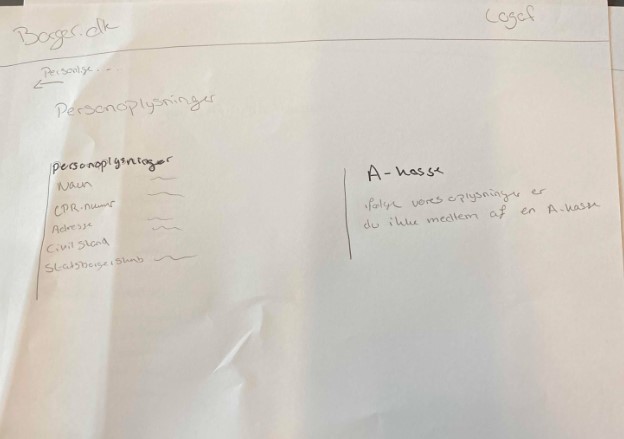 Borger.dk
Log af
Personlige...
Personoplysninger
Personoplysninger
Navn
CPR-numr
Adresse
Civil Stand
Statsborgerskab
A-kasse
ifølge vores oplysninger er
du ikke medlem af en A-kasse